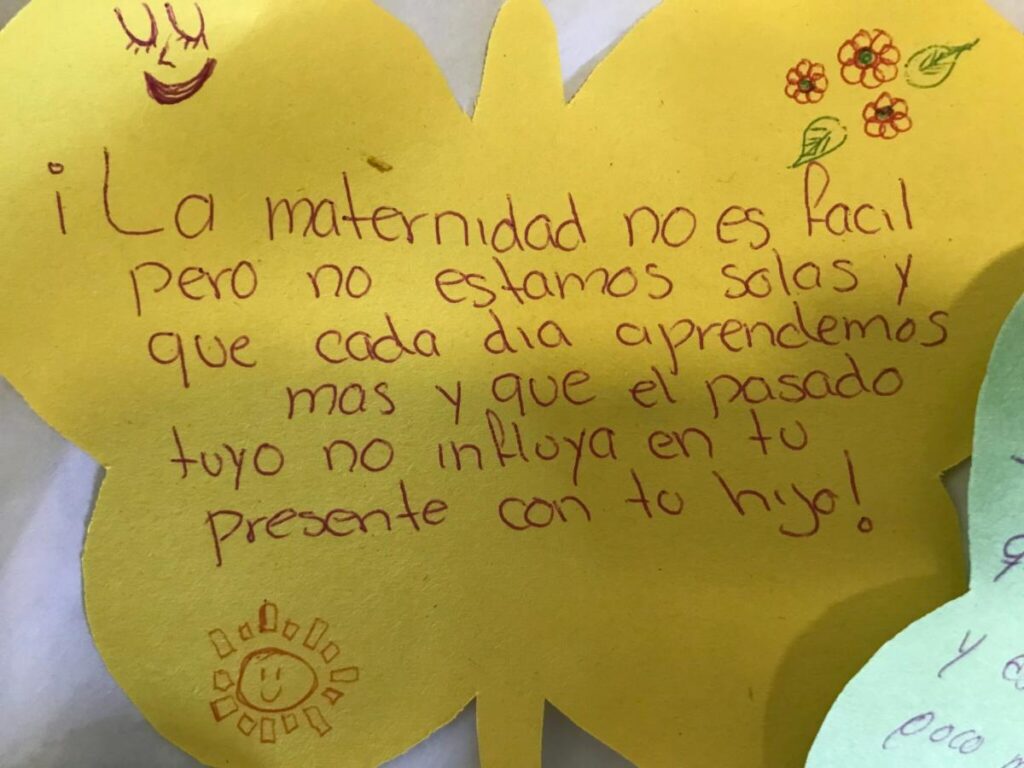 ¡ La maternidad no es facil
pero no estamos solas y
que cada dia aprendemos
mas y que el pasado
tuyo no influya en tu
presente con tu hijo!
y
poco